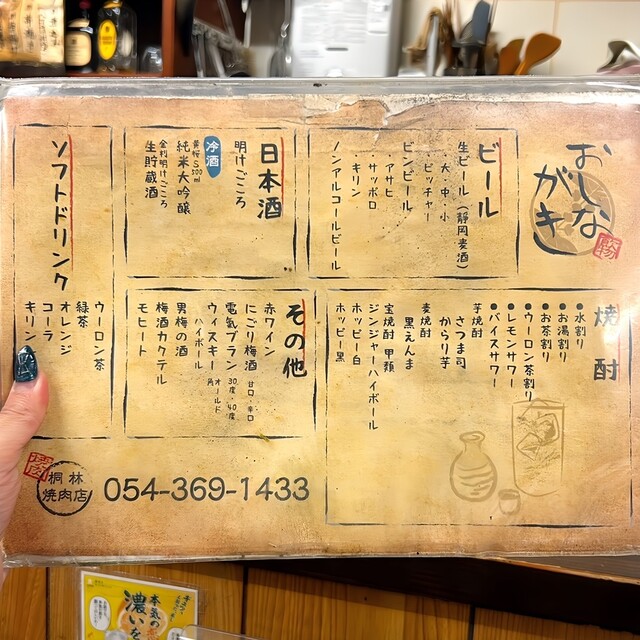 おしな
がき
ビール
生ビール(静岡麦酒)
・大・中・小
・ピッチャー
ビンビール
・アサヒ
・サッポロ
・キリン
ノンアルコールビール
日本酒
明けごころ
冷酒
純米大吟醸
生貯蔵酒
ソフトドリンク
ウーロン茶
緑茶
オレンジ
コーラ
キリン
焼酎
●水割り
●お湯割り
●お茶割り
●ウーロン茶割り
●レモンサワー
●バイスサワー
芋焼酎
さつま司
からり芋
麦焼酎
黒えんま
宝焼酎 甲類
ジンジャーハイボール
ホッピー白
ホッピー黒
その他
赤ワイン
にごり梅酒 甘口・辛口
電気ブラン 30度・40度
ウィスキー オールド
角
ハイボール
男梅の酒
梅酒カクテル
モヒート
桐林
焼肉店
054-369-1433
本気の
濃いを